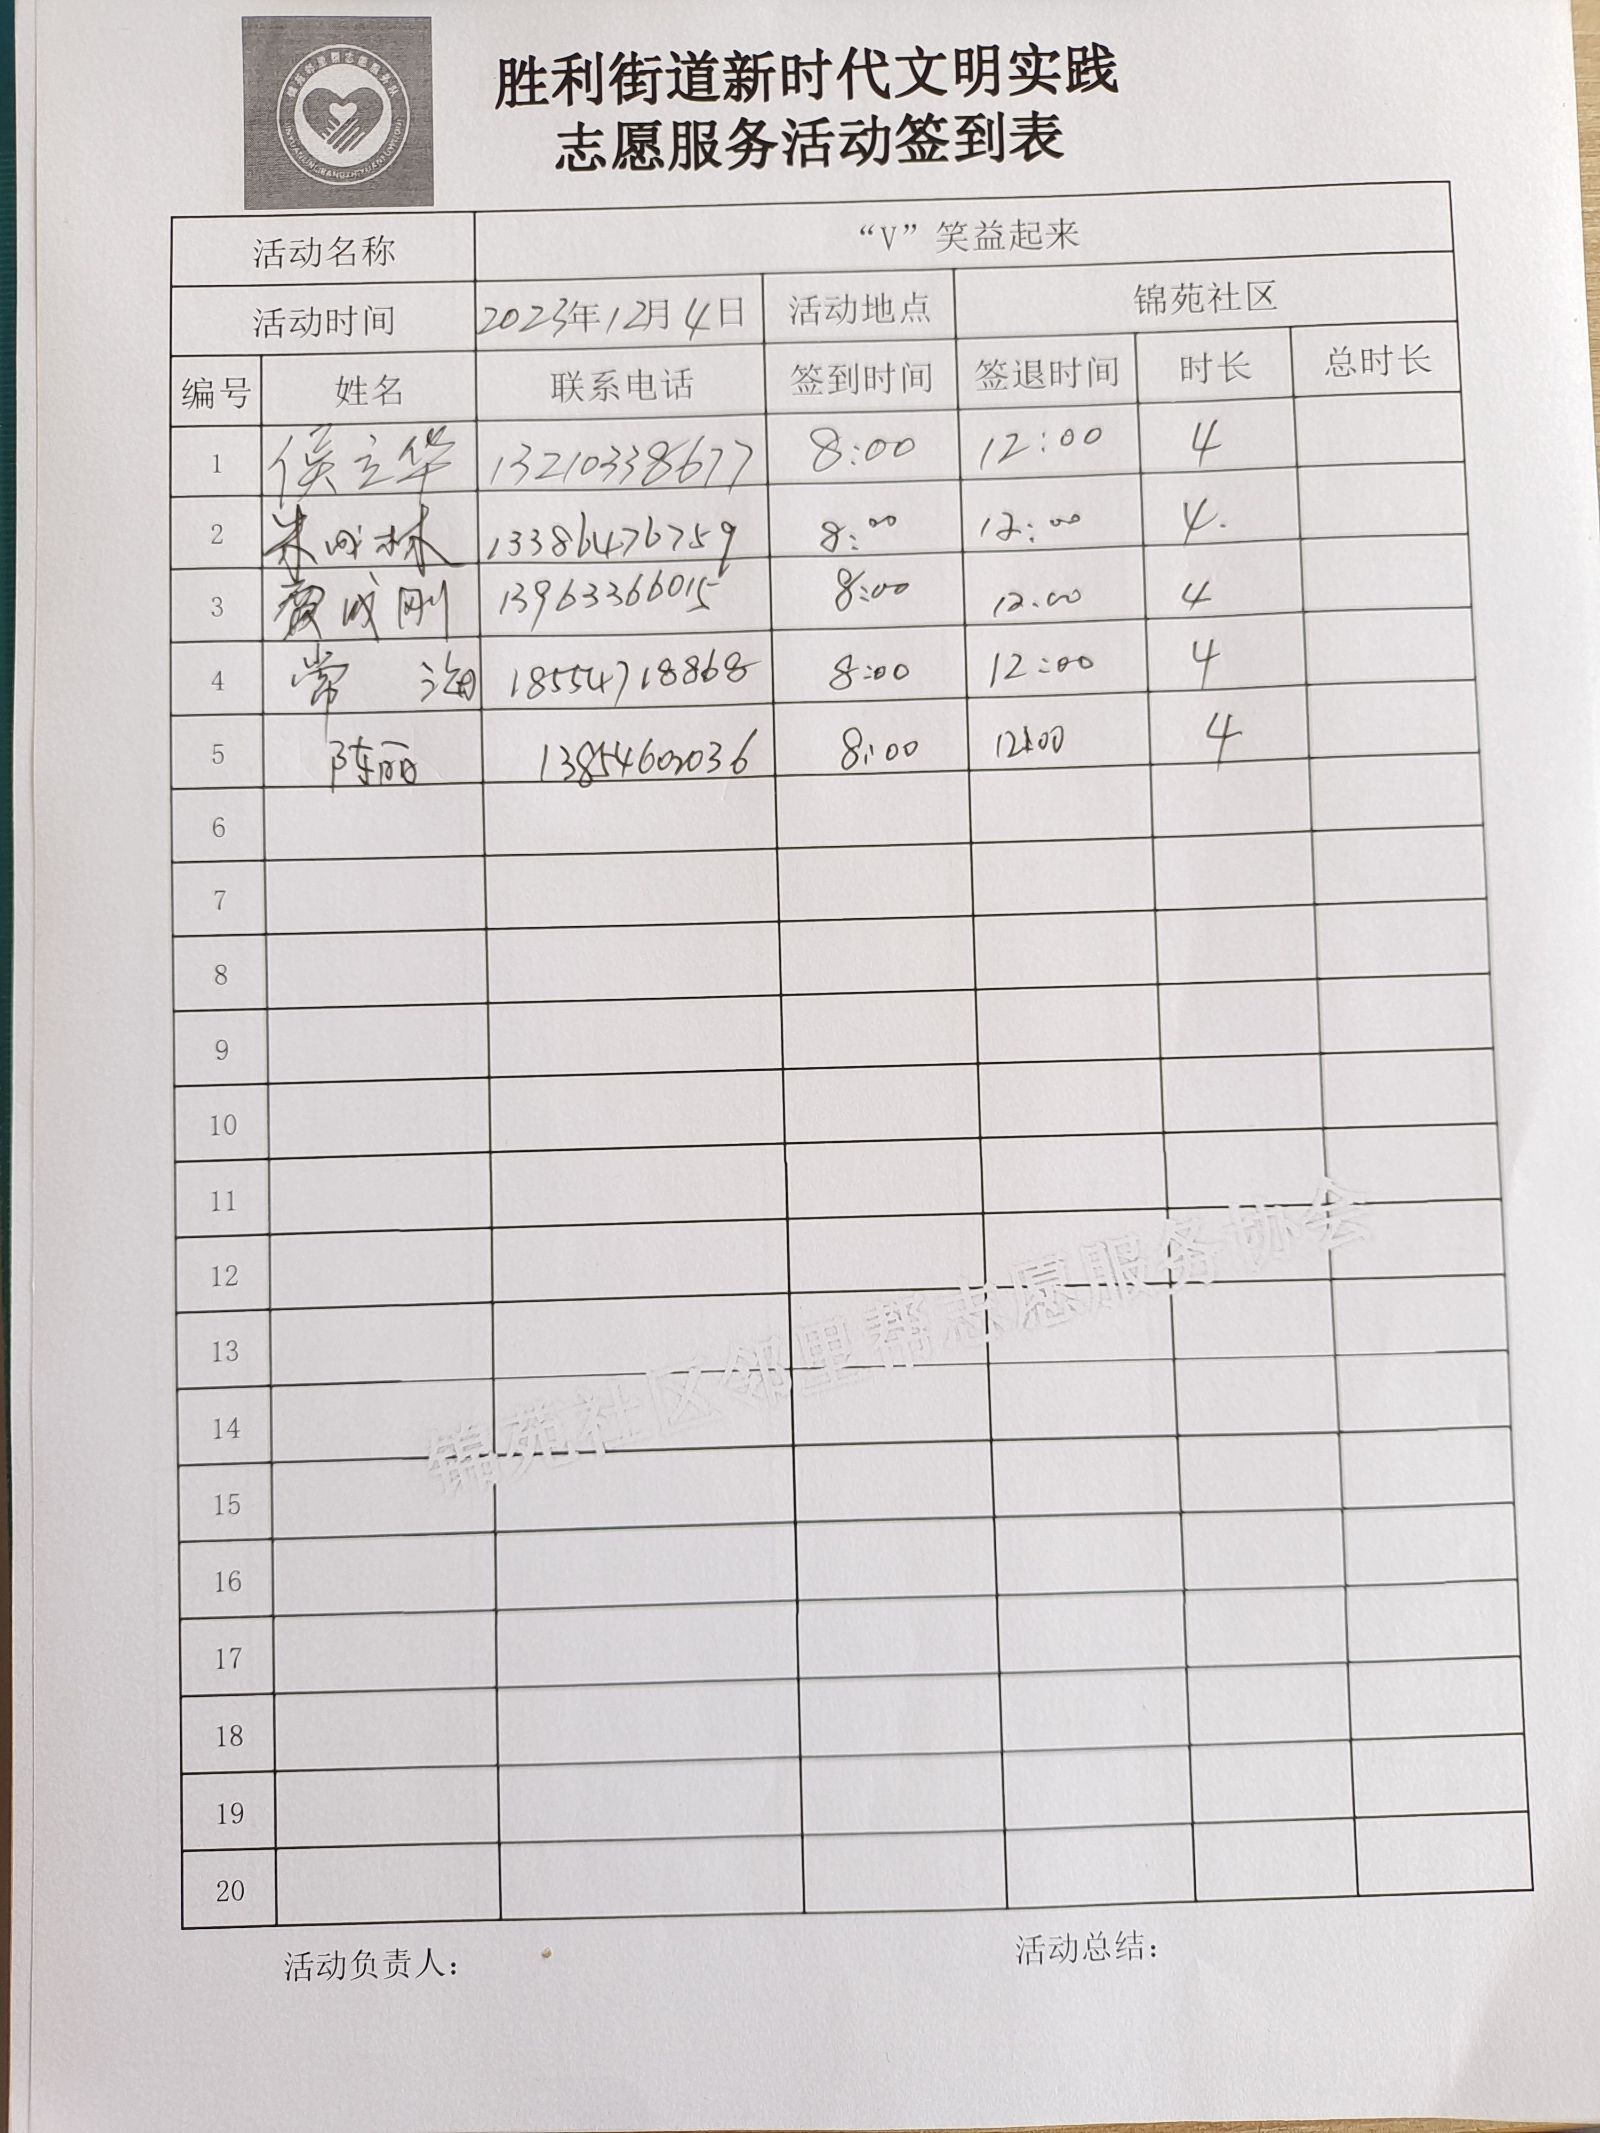 锦苑邻里帮志愿服务队
胜利街道新时代文明实践
志愿服务活动签到表
活动名称 “V”笑益起来
活动时间 2023年12月4日 活动地点 锦苑社区
编号 姓名 联系电话 签到时间 签退时间 时长 总时长
1 侯立华 13210338677 8:00 12:00 4
2 朱成林 13386476759 8:00 12:00 4.
3 贾成刚 13963366015 8:00 12:00 4
4 常 海 18554718868 8:00 12:00 4
5 陈丽 8:00 12:00 4
6
7
8
9
10
11
12
13
14
15
16
17
18
19
20
锦苑社区邻里帮志愿服务协会
活动负责人： 活动总结：